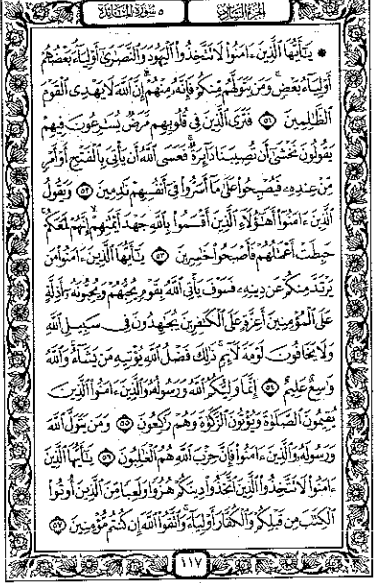 الجزء السادس ٥ سورة المائدة
۞ يَٰٓأَيُّهَا ٱلَّذِينَ ءَامَنُوا۟ لَا تَتَّخِذُوا۟ ٱلْيَهُودَ وَٱلنَّصَٰرَىٰٓ أَوْلِيَآءَ بَعْضُهُمْ
أَوْلِيَآءُ بَعْضٍ وَمَن يَتَوَلَّهُم مِّنكُمْ فَإِنَّهُۥ مِنْهُمْ إِنَّ ٱللَّهَ لَا يَهْدِى ٱلْقَوْمَ
ٱلظَّٰلِمِينَ ٥١ فَتَرَى ٱلَّذِينَ فِى قُلُوبِهِم مَّرَضٌ يُسَٰرِعُونَ فِيهِمْ
يَقُولُونَ نَخْشَىٰٓ أَن تُصِيبَنَا دَآئِرَةٌ فَعَسَى ٱللَّهُ أَن يَأْتِىَ بِٱلْفَتْحِ أَوْ أَمْرٍ
مِّنْ عِندِهِۦ فَيُصْبِحُوا۟ عَلَىٰ مَآ أَسَرُّوا۟ فِىٓ أَنفُسِهِمْ نَٰدِمِينَ ٥٢ وَيَقُولُ
ٱلَّذِينَ ءَامَنُوٓا۟ أَهَٰٓؤُلَآءِ ٱلَّذِينَ أَقْسَمُوا۟ بِٱللَّهِ جَهْدَ أَيْمَٰنِهِمْ إِنَّهُمْ لَمَعَكُمْ
حَبِطَتْ أَعْمَٰلُهُمْ فَأَصْبَحُوا۟ خَٰسِرِينَ ٥٣ يَٰٓأَيُّهَا ٱلَّذِينَ ءَامَنُوا۟ مَن
يَرْتَدَّ مِنكُمْ عَن دِينِهِۦ فَسَوْفَ يَأْتِى ٱللَّهُ بِقَوْمٍ يُحِبُّهُمْ وَيُحِبُّونَهُۥٓ أَذِلَّةٍ
عَلَى ٱلْمُؤْمِنِينَ أَعِزَّةٍ عَلَى ٱلْكَٰفِرِينَ يُجَٰهِدُونَ فِى سَبِيلِ ٱللَّهِ
وَلَا يَخَافُونَ لَوْمَةَ لَآئِمٍ ذَٰلِكَ فَضْلُ ٱللَّهِ يُؤْتِيهِ مَن يَشَآءُ وَٱللَّهُ
وَٰسِعٌ عَلِيمٌ ٥٤ إِنَّمَا وَلِيُّكُمُ ٱللَّهُ وَرَسُولُهُۥ وَٱلَّذِينَ ءَامَنُوا۟ ٱلَّذِينَ
يُقِيمُونَ ٱلصَّلَوٰةَ وَيُؤْتُونَ ٱلزَّكَوٰةَ وَهُمْ رَٰكِعُونَ ٥٥ وَمَن يَتَوَلَّ ٱللَّهَ
وَرَسُولَهُۥ وَٱلَّذِينَ ءَامَنُوا۟ فَإِنَّ حِزْبَ ٱللَّهِ هُمُ ٱلْغَٰلِبُونَ ٥٦ يَٰٓأَيُّهَا ٱلَّذِينَ
ءَامَنُوا۟ لَا تَتَّخِذُوا۟ ٱلَّذِينَ ٱتَّخَذُوا۟ دِينَكُمْ هُزُوًا وَلَعِبًا مِّنَ ٱلَّذِينَ أُوتُوا۟
ٱلْكِتَٰبَ مِن قَبْلِكُمْ وَٱلْكُفَّارَ أَوْلِيَآءَ وَٱتَّقُوا۟ ٱللَّهَ إِن كُنتُم مُّؤْمِنِينَ ٥٧
١١٧